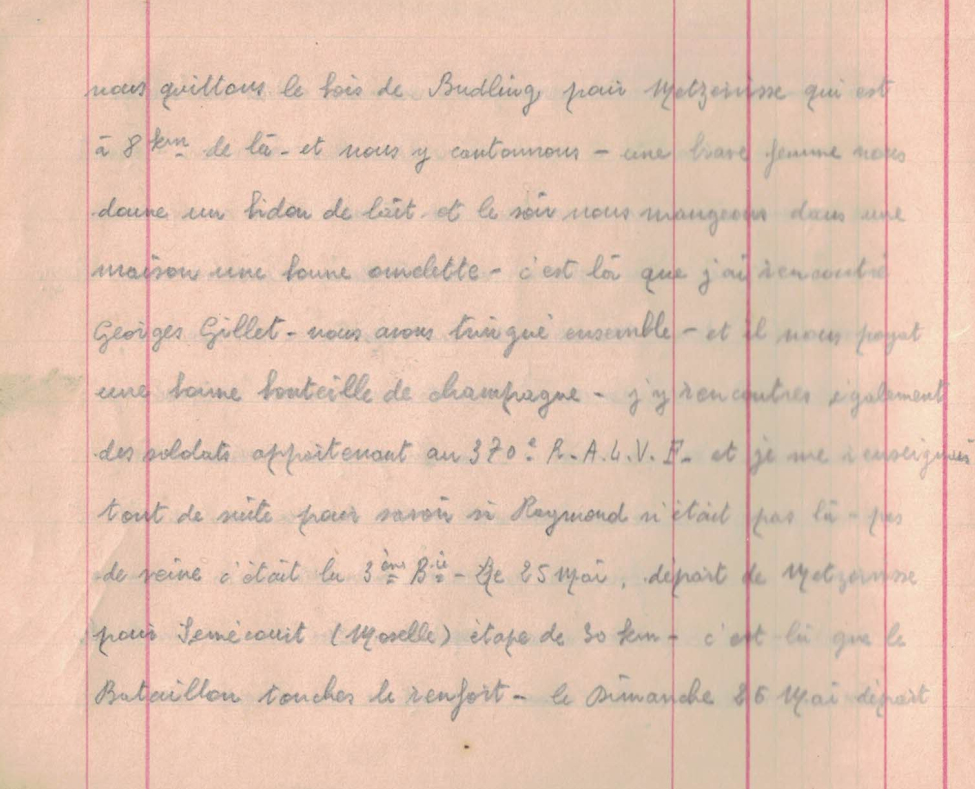 nous quittons le bois de Budling pour Metzervisse qui est
à 8 km de là - et nous y cantonnons - une brave femme nous
donne un bidon de lait et le soir nous mangeons dans une
maison une bonne omelette - c'est là que j'ai rencontré
Georges Gillet - nous avons trinqué ensemble - et il nous payat
une bonne bouteille de champagne - j'y rencontres également
des soldats appartenant au 370e R.A.L.V.F. et je me renseignais
tout de suite pour savoir si Raymond n'était pas là - pas
de veine c'était la 3ème Bie - Le 25 Mai, départ de Metzervisse
pour Semécourt (Moselle) étape de 30 km - c'est là que le
Bataillon touches le renfort - le Dimanche 26 Mai départ